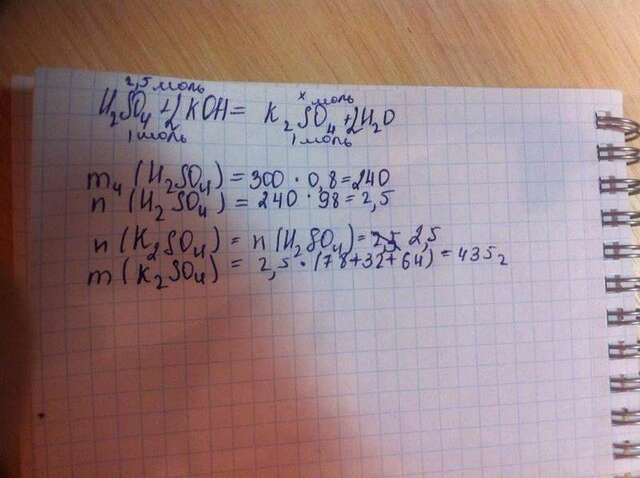 2,5 моль x моль
H₂SO₄ + 2KOH = K₂SO₄ + 2H₂O
1 моль 1 моль
mч (H₂SO₄) = 300 · 0,8 = 240
n (H₂SO₄) = 240 · 98 = 2,5
n (K₂SO₄) = n (H₂SO₄) = 2,5 2,5
m (K₂SO₄) = 2,5 · (78+32+64) = 435г